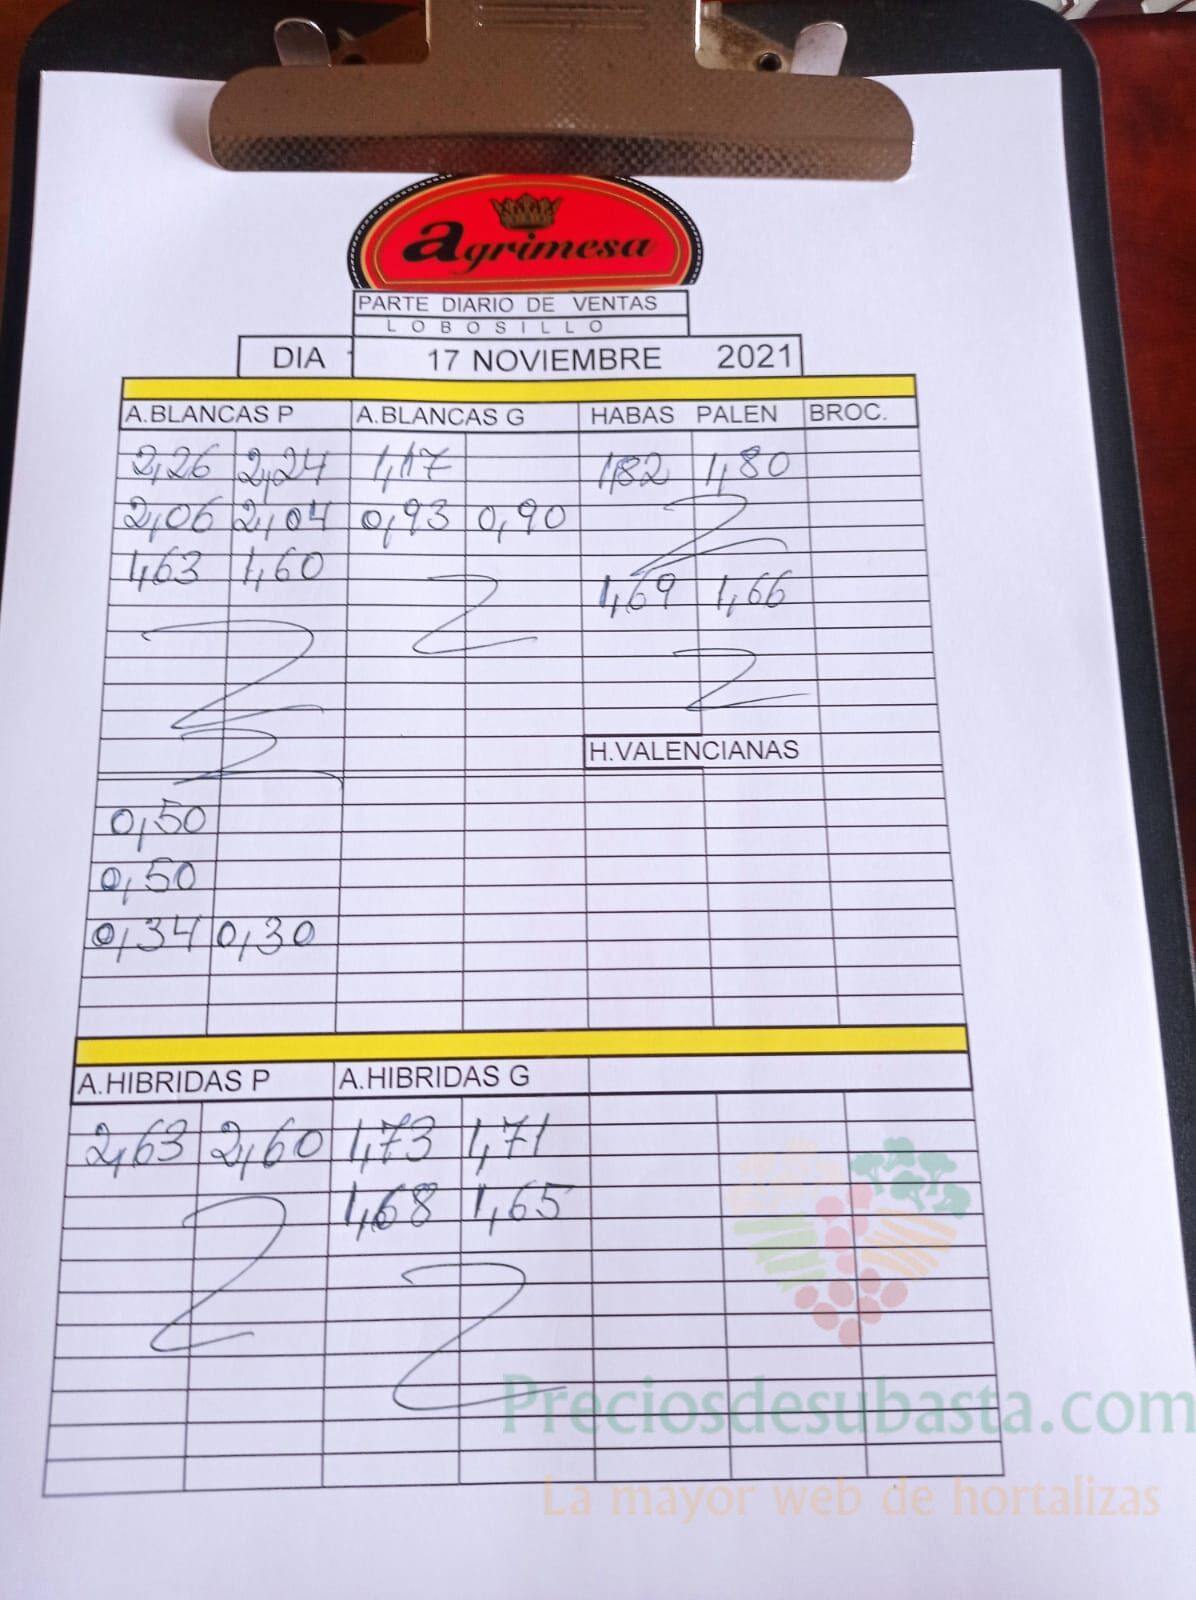 agrimesa
PARTE DIARIO DE VENTAS
LOBOSILLO
DIA 17 NOVIEMBRE 2021
A.BLANCAS P A.BLANCAS G HABAS PALEN BROC.
2,26 2,24 1,17 1,82 1,80
2,06 2,04 0,93 0,90
1,63 1,60
1,69 1,66
H.VALENCIANAS
0,50
0,50
0,34 0,30
A.HIBRIDAS P A.HIBRIDAS G
2,63 2,60 1,73 1,71
1,68 1,65
Preciosdesubasta.com
La mayor web de hortalizas